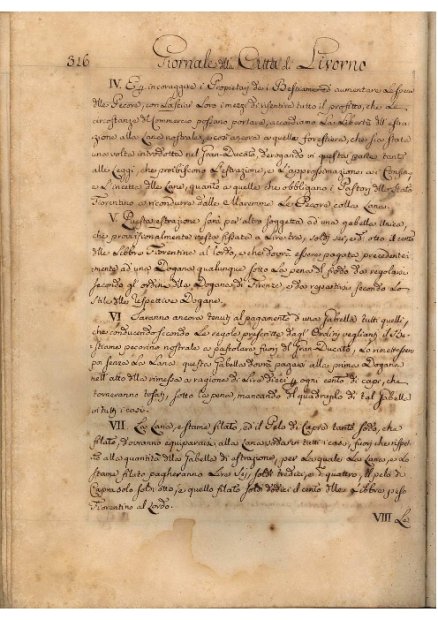 316 Giornale della Città di Livorno
IV. E per incoraggire i Propietarj dei Bestiami ad aumentare la specie
delle Pecore, con lasciar loro i mezzi di risentire tutto il profitto, che le
circostanze del Commercio possono portare, accordiamo la Libertà dell' estra
zione alla Lana nostrale, e così ancora a quella forestiera, che sia stata
una volta introdotta nel Gran-Ducato, derogando in questa parte tanto
alle Leggi, che proibiscono l'estrazione, e
e l'incetta delle Lane, quanto a quelle che obbligano i Pastori dello Stato
Fiorentino a ricondurre dalle Maremme le Pecore colla Lana.
V. Questa estrazione sarà per altro soggetta ad una gabella unica,
che provvisionalmente resta fissata a Lire tre, soldi sei, e d. otto il cento
delle Libbre Fiorentine al Lordo, e che dovrà essere pagata precedente
mente ad una Dogana qualunque sotto la pena del frodo da regolarsi
secondo gl' ordini della Dogana di Firenze, e da repartirsi secondo lo
Stile delle respettive Dogane.
VI Saranno ancora tenuti al pagamento d' una Gabella tutti quelli,
che conducendo secondo le regole prescritte dagl' Ordini veglianti il Be-
stiame pecorino nostrale a pasturare fuori del Gran Ducato, lo rimettessero
poi senza la Lana questa Gabella dovrà pagarsi alla prima Dogana
nell' atto della rimessa a ragione di Lire dieci per ogni cento di capi, che
torneranno tosati, sotto la pena, mancando, del quadruplo di tal Gabella
in tutti i casi.
VII. La Lana, e stame filato, ed il Pelo di Capra tanto sodo, che
filato, dovranno equipararsi alla Lana soda in tutti i casi, fuori che rispet
to alla quantità della Gabella di estrazione, per la quale la Lana, e lo
stame filato pagheranno Lire sei, soldi tredici, e d. quattro, il pelo di
Capra sodo soldi otto, e quello filato soldi dodici il cento delle Libbre peso
Fiorentino al Lordo.
VIII La